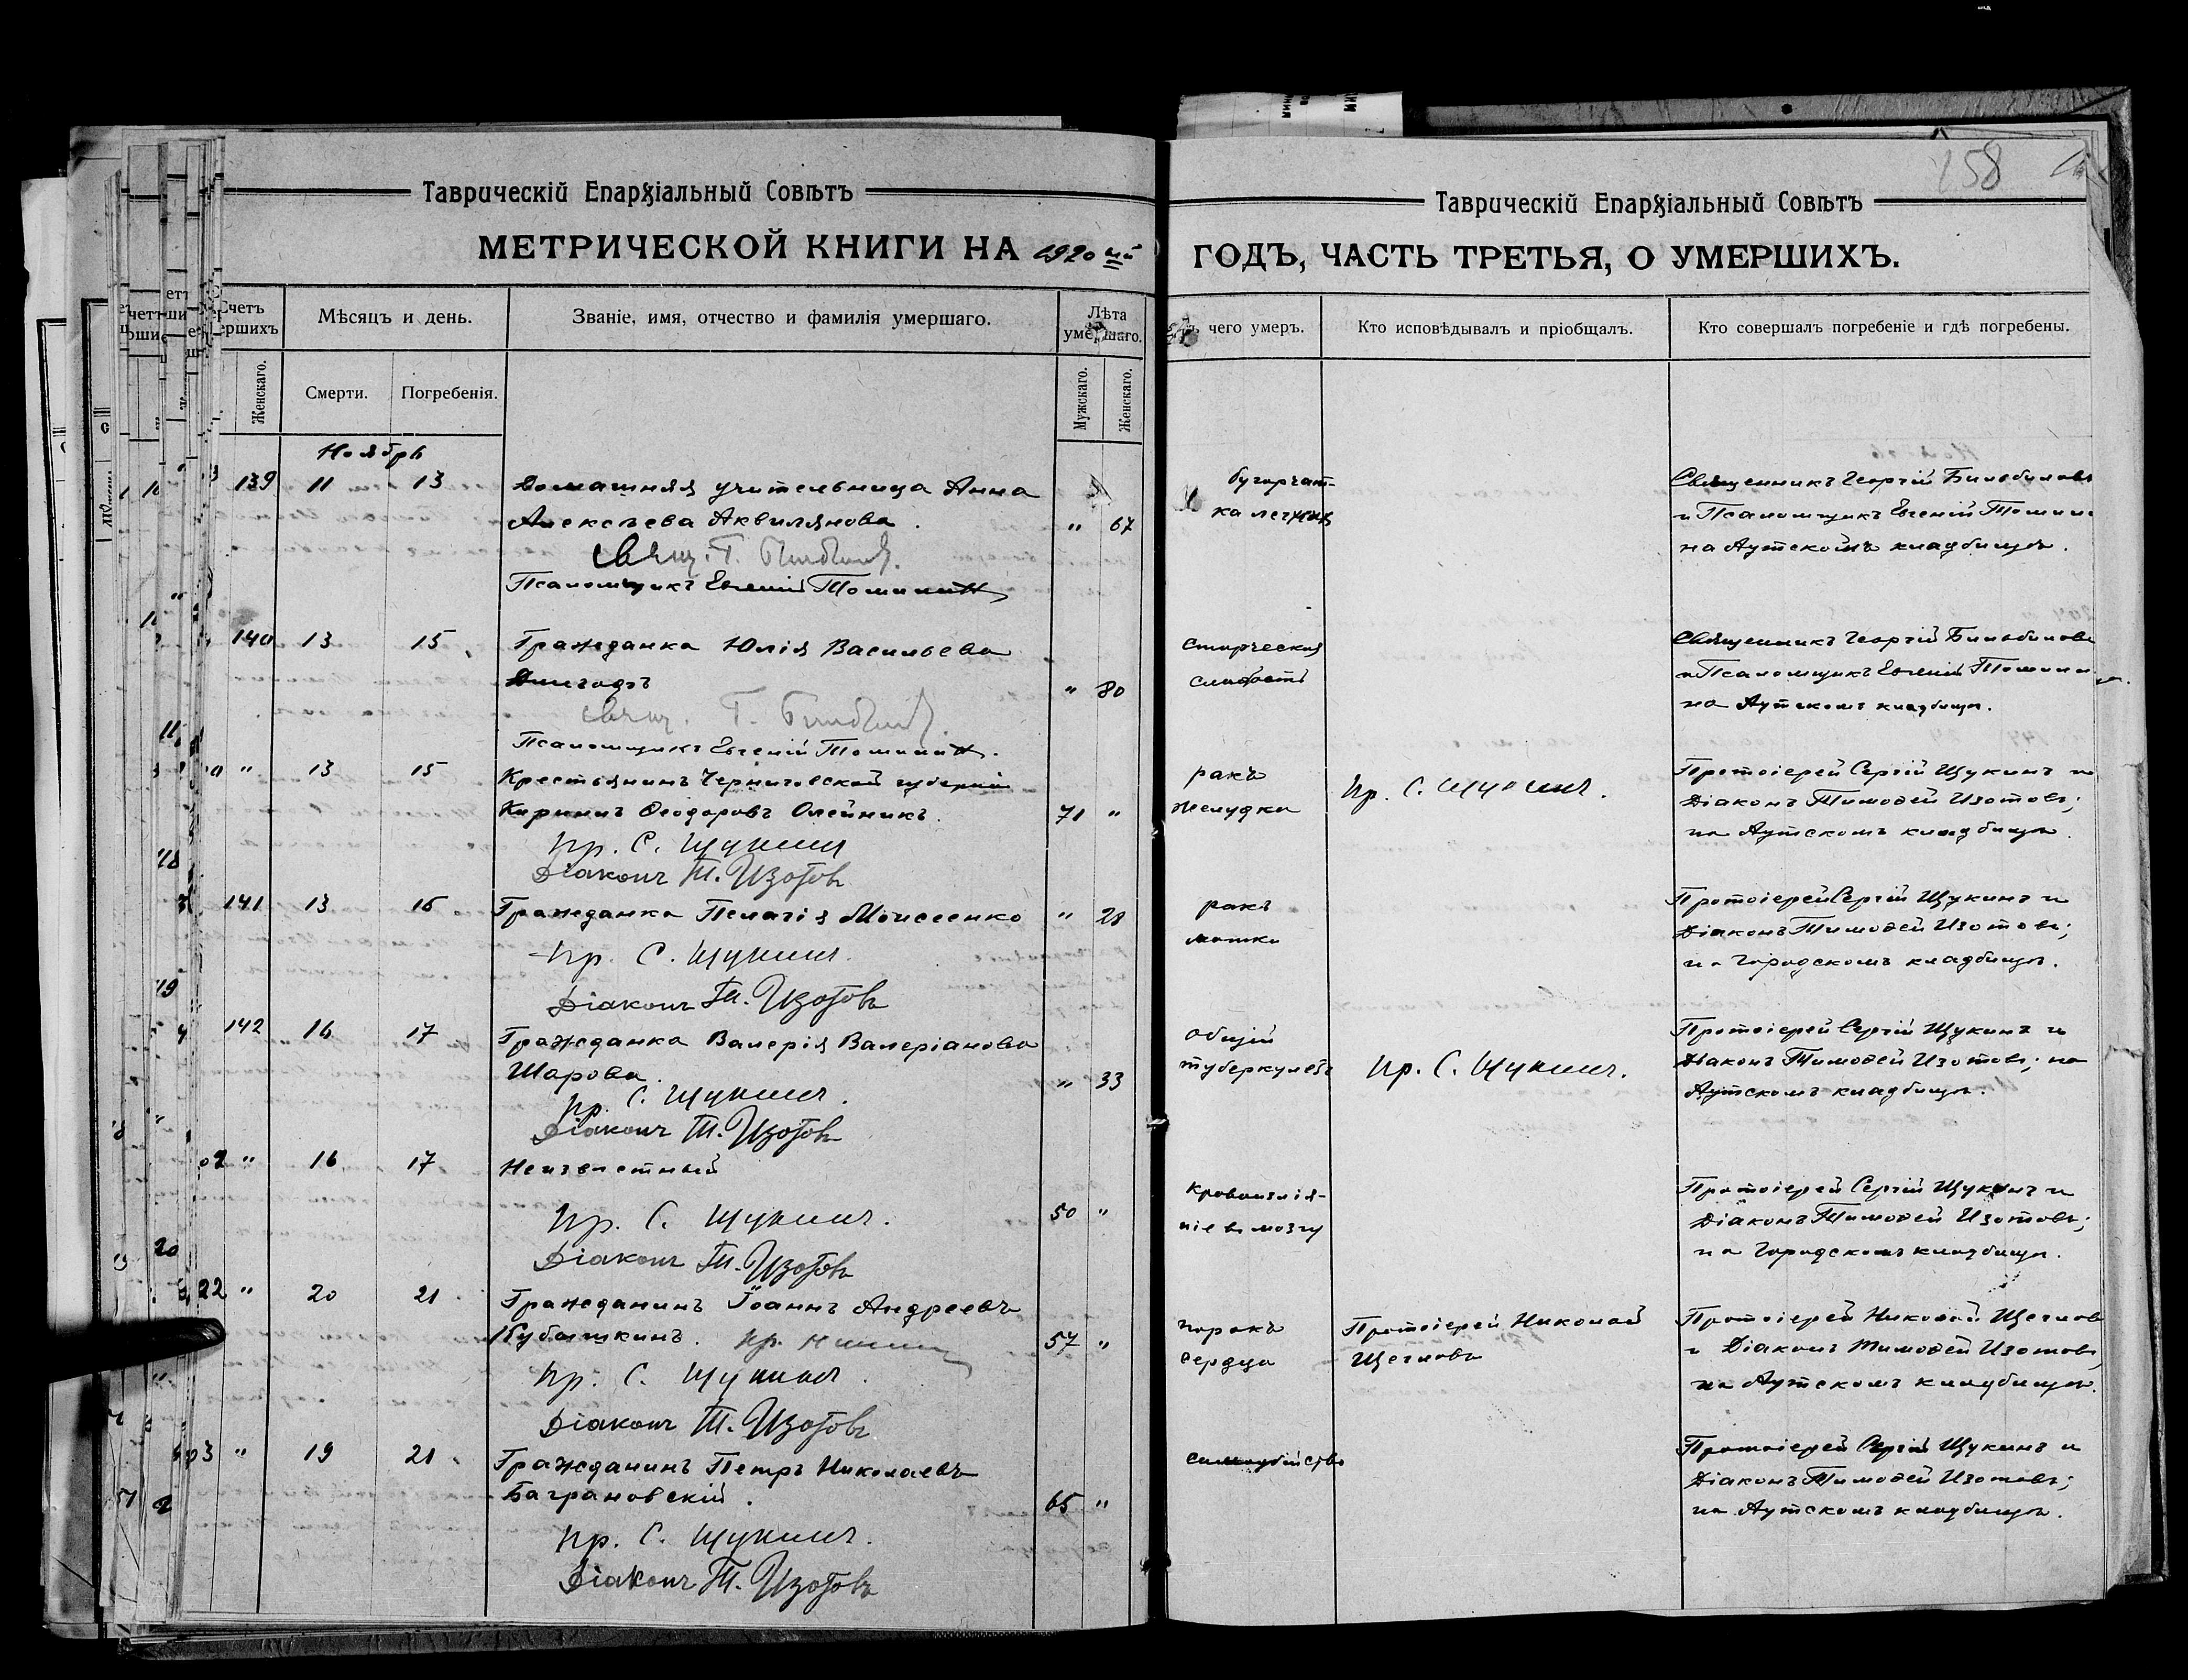 158
Таврическій Епархіальный Совѣтъ
МЕТРИЧЕСКОЙ КНИГИ НА 1920 ый
Счетъ
ершихъ
Мѣсяцъ и день.
Званіе, имя, отчество и фамилія умершаго.
Лѣта
умершаго.
Женскаго.
Смерти.
Погребенія.
Мужскаго.
Женскаго.
Ноябрь
139 11 13 Домашняя учительница Анна
Алексѣева Аквилянова. " 67
Свящ. Г.
Псаломщикъ Евгеній
140 13 15 Гражданка Юлія Васильева
" 80
Свящ. Г.
Псаломщикъ Евгеній
" 13 15 Крестьянинъ Черниговской губерніи
Кириллъ Ѳеодоровъ Олейникъ. 71 "
Пр. С. Щукинъ
Діаконъ Т. Изотовъ
141 13 16 Гражданка Пелагія Моисеенко " 28
Пр. С. Щукинъ.
Діаконъ Т. Изотовъ
142 16 17 Гражданка Валерія Валеріанова
Шарова. " 33
Пр. С. Щукинъ.
Діаконъ Т. Изотовъ
" 16 17 Неизвѣстный
Пр. С. Щукинъ. 50 "
Діаконъ Т. Изотовъ
22 " 20 21 Гражданинъ Іоаннъ Андреевъ
Кубышкинъ. 57 "
Пр. С. Щукинъ.
Діаконъ Т. Изотовъ
3 " 19 21 Гражданинъ Петръ Николаевъ
Баграновскій. 65 "
Пр. С. Щукинъ.
Діаконъ Т. Изотовъ
Таврическій Епархіальный Совѣтъ
ГОДЪ, ЧАСТЬ ТРЕТЬЯ, О УМЕРШИХЪ.
чего умеръ.
Кто исповѣдывалъ и пріобщалъ.
Кто совершалъ погребеніе и гдѣ погребены.
бугорчат- Священникъ Георгій
ка легкихъ и Псаломщикъ Евгеній
на Аутскомъ кладбищѣ.
старческая Священникъ Георгій
слабость и Псаломщикъ Евгеній
на Аутскомъ кладбищѣ.
ракъ Протоіерей Сергій Щукинъ и
желудка Пр. С. Щукинъ. Діаконъ Тимоѳей Изотовъ;
на Аутскомъ кладбищѣ.
ракъ Протоіерей Сергій Щукинъ и
матки Діаконъ Тимоѳей Изотовъ;
на Городскомъ кладбищѣ.
общій Протоіерей Сергій Щукинъ и
туберкулезъ Пр. С. Щукинъ. Діаконъ Тимоѳей Изотовъ; на
Аутскомъ кладбищѣ.
кровоизлія- Протоіерей Сергій Щукинъ и
ніе въ мозгу Діаконъ Тимоѳей Изотовъ;
на Городскомъ кладбищѣ.
порокъ Протоіерей Николай Протоіерей Николай Щегловъ
сердца Щегловъ и Діаконъ Тимоѳей Изотовъ,
на Аутскомъ кладбищѣ.
самоубійство Протоіерей Сергій Щукинъ и
Діаконъ Тимоѳей Изотовъ;
на Аутскомъ кладбищѣ.